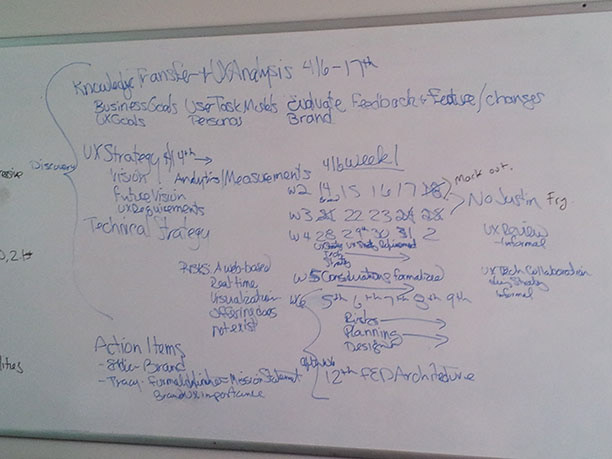 Knowledge Transfer + UX Analysis 4/6-17th
Business Goals User Task Models Evaluate Feedback + Feature/changes
UX Goals Personas Brand
UX Strategy 4/14th →
Vision Analytics/Measurements
Future Vision
UX Requirements
Technical Strategy
Discovery
4/6 week 1
W2 14 15 16 17 18 Mock out.
No Justin Fry.
W3 21 22 23 24 25
W4 28 29th 30 31 2
Strategy
UX Review
- Informal
W5 Considerations formalized
UX Tech Collaboration
Strategy
Informal
Risks: A web-based
Real time
Visualization
offering does
not exist
W6 5th 6th 7th 8th 9th
Risks
Planning
Designs
Action Items
- Brand
- Tracy- Mission Statement
Brand importance
12th FED Architecture